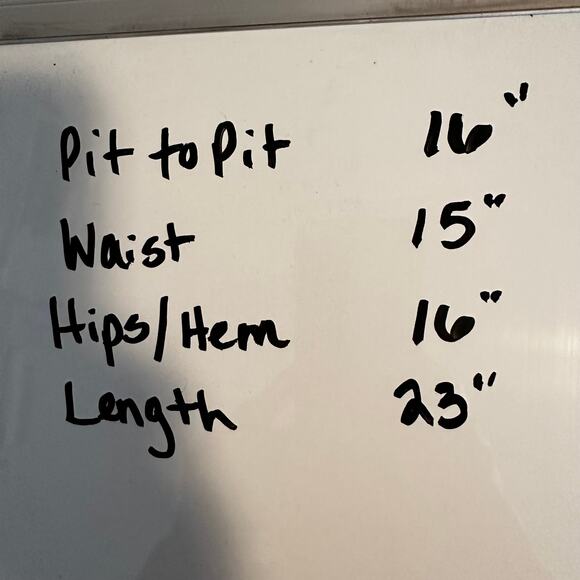 Pit to Pit 16"
Waist 15"
Hips/Hem 16"
Length 23"